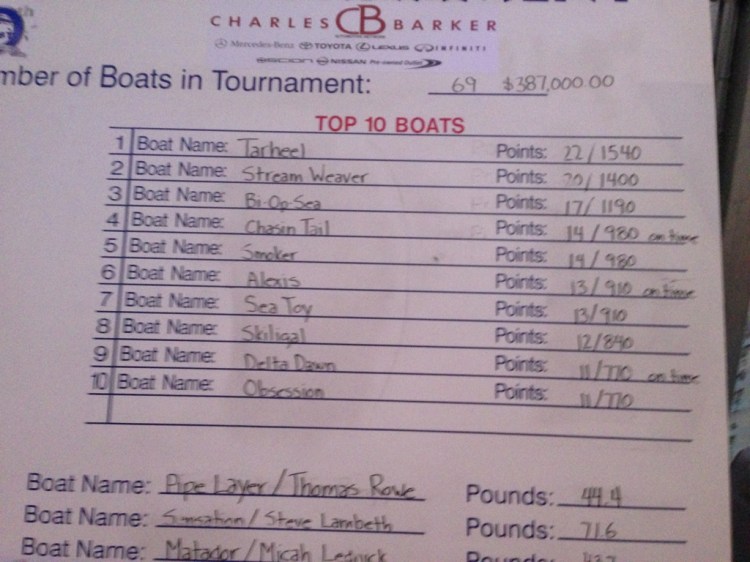 CHARLES CB BARKER
Mercedes-Benz TOYOTA LEXUS INFINITI
SCION NISSAN Pre-owned Outlet
mber of Boats in Tournament: 69 $387,000.00
TOP 10 BOATS
1 Boat Name: Tarheel Points: 22/1540
2 Boat Name: Stream Weaver Points: 20/1400
3 Boat Name: Bi-Op-Sea Points: 17/1190
4 Boat Name: Chasin Tail Points: 14/980 on time
5 Boat Name: Smoker Points: 14/980
6 Boat Name: Alexis Points: 13/910 on time
7 Boat Name: Sea Toy Points: 13/910
8 Boat Name: Skiligal Points: 12/840
9 Boat Name: Delta Dawn Points: 11/770 on time
10 Boat Name: Obsession Points: 11/770
Boat Name: Pipe Layer/Thomas Rowe Pounds: 44.4
Boat Name: Simsation/Steve Lambeth Pounds: 71.6
Boat Name: Matador/Micah Lednick Pounds: